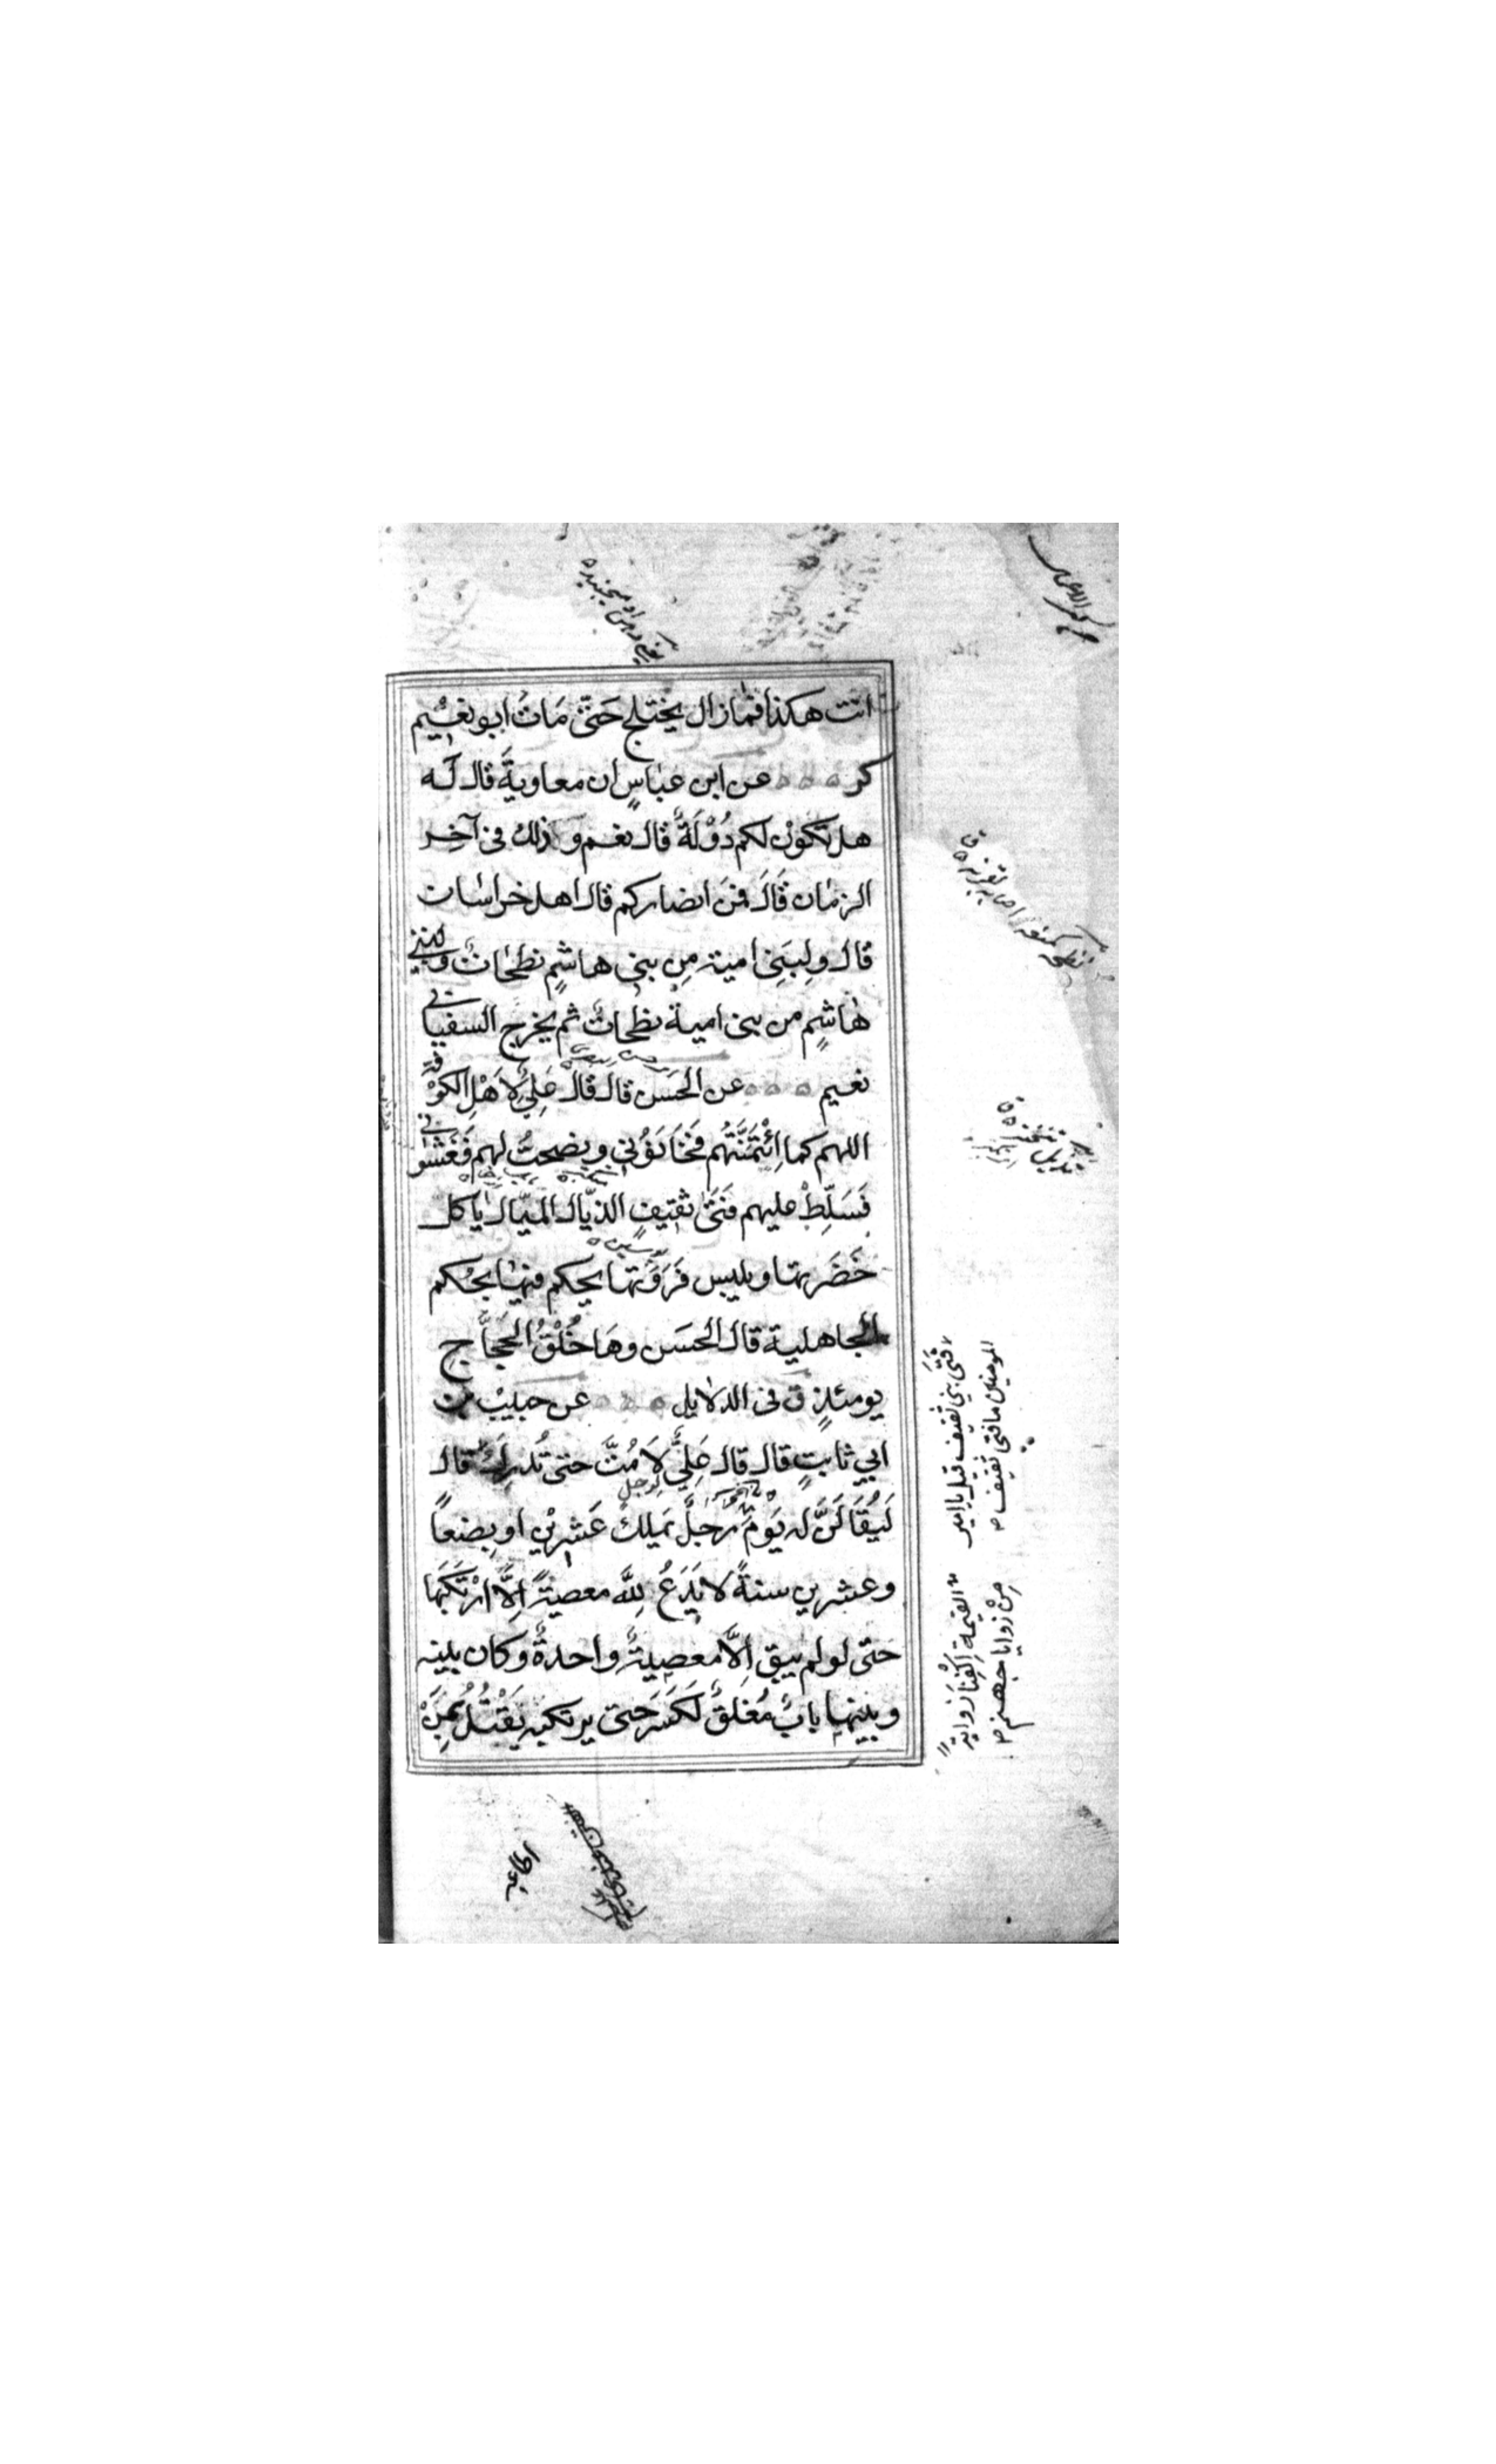 انت هكذا فما زال يختلج حَتّٰى مَاتَ ابو نعيم
كر عن ابن عباسٍ ان معاوية قال لَه
هل تكون لكم دُوْلَةٌ قال نعم و ذلك فى آخِر
الزمان قَالَ فمن انصاركم قال اهل خراسان
قال ولِبَنِى امية مِن بنى هاشمٍ نطحاتٌ ولبنى
هاشِمٍ من بنى امية نطحاتٌ ثم يخرج السفيانى
نعيم عن الحَسن قال قال عَلِىٌّ لِاَهْلِ الكوفة
اللهم كما اِئْتَمَنْتُهُم فَخَانُوْنِى و نصحتُ لهم فَغَشّونى
فَسَلِّطْ عليهم فَتَى ثقيفٍ الذيّال الميّال ياكل
خَضَرتها و يلبس فَرَوَتها يحكم فيها بحُكم
الجاهلية قال الحسَن وهَا خُلْقُ الحَجاَّج
يومئذٍ ق فى الدلايل عن حبيب بن
ابى ثابتٍ قال قال عَلِىٌّ لرجل لَا مُتَّ حتى تُدرِكَ قال
لَيُقَالَنَّ له يَوْمَ رَجلٌ يَملِكُ عَشرِيْن او بِضعاً
وعشرين سنةً لا يَدَعُ لِلّٰه معصيةً اِلَّا ارْتَكَبَهَا
حتى لو لم يبق اِلَّا معصيةٌ واحدةٌ وكان بينه
وبينها بابٌ مُغلَقٌ لَكَسَرَ حتى يرتكبه يَقْتُلُ بِمَنْ
فَتَى بَنِى ثقيف قيل يا امير
المومنين ما فتى ثقيف
القيمة اِكْفِنَا زواية
مِنْ زوايا جهنم